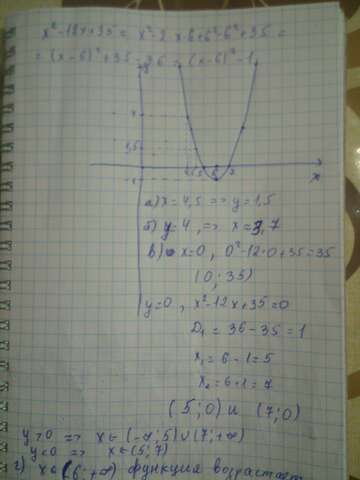 x² - 12x + 35 = x² - 2·x·6 + 6² - 6² + 35 =
= (x - 6)² + 35 - 36 = (x - 6)² - 1
y
x
а) x = 4,5 => y = 1,5
б) y = 4, => x = 3,7
в) x = 0, 0² - 12·0 + 35 = 35
(0; 35)
y = 0, x² - 12x + 35 = 0
D₁ = 36 - 35 = 1
x₁ = 6 - 1 = 5
x₂ = 6 + 1 = 7
(5; 0) и (7; 0)
y > 0 => x ∈ (-∞; 5) ∪ (7; +∞)
y < 0 => x ∈ (5; 7)
г) x ∈ (6; +∞) функция возрастает